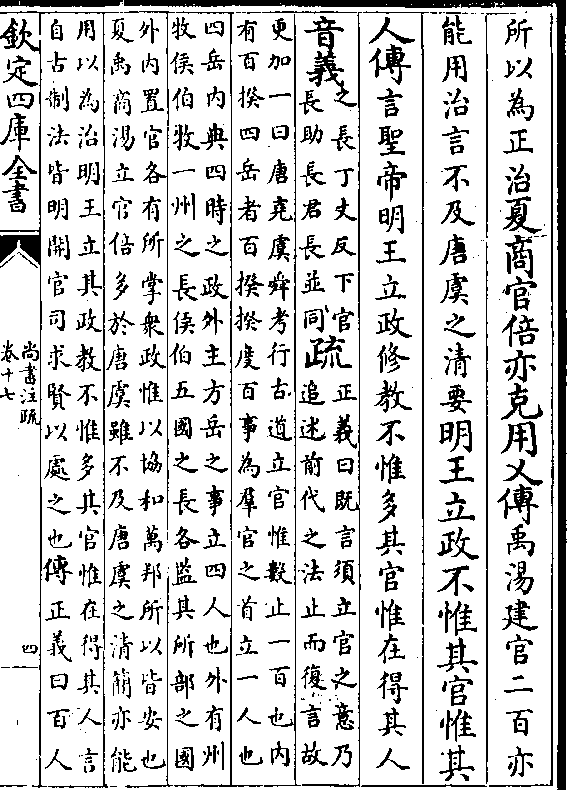 所以為正治夏商官倍亦克用乂傳禹湯建官二百亦
能用治言不及唐虞之清要明王立政不惟其官惟其
人傳言聖帝明王立政修教不惟多其官惟在得其人
音義之長丁丈反下官
長助長君長並同疏正義曰既言須立官之意乃
追述前代之法止而復言故
更加一曰唐堯虞舜考行古道立官惟數止一百也内
有百揆四岳者百揆揆度百事為羣官之首立一人也
四岳内典四時之政外主方岳之事立四人也外有州
牧侯伯牧一州之長侯伯五國之長各監其所部之國
外内置官各有所掌衆政惟以協和萬邦所以皆安也
夏禹商湯立官倍多於唐虞雖不及唐虞之清簡亦能
用以為治明王立其政教不惟多其官惟在得其人言
自古制法皆明開官司求賢以處之也傳正義曰百人
欽定四庫全書
尚書注疏
卷十七
四